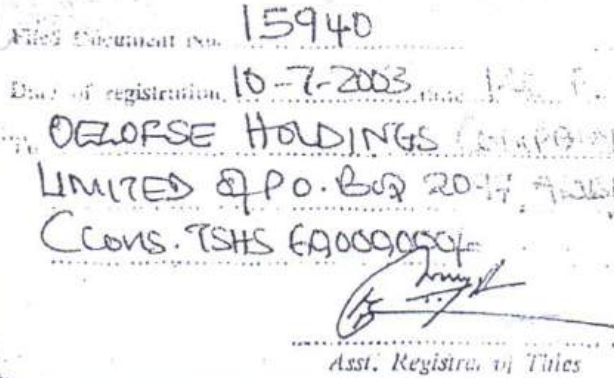 Filed Document No. 15940
Date of registration 10-7-2003 time
To OELOFSE HOLDINGS
LIMITED of P.O. Box 2047
CCONS. TSHS 60,000,000/=
Asst. Registrar of Titles